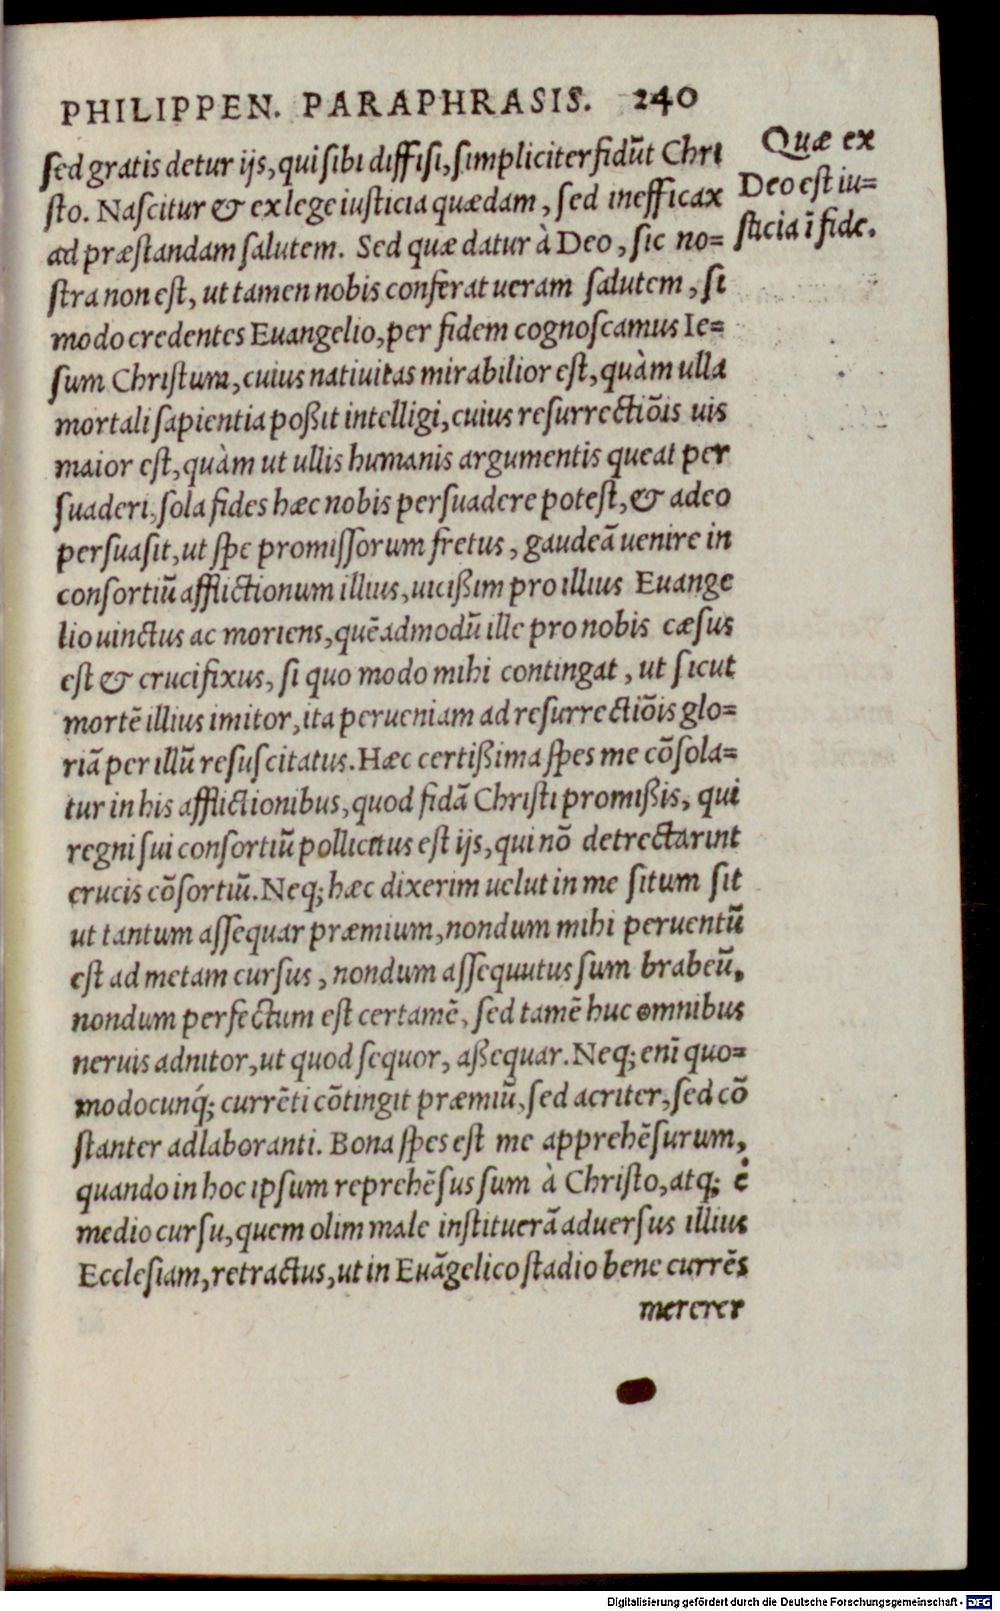 PHILIPPEN. PARAPHRASIS. 240
sed gratis detur ijs, qui sibi diffisi, simpliciter fidūt Chri
sto. Nascitur & ex lege iusticia quædam, sed inefficax
ad præstandam salutem. Sed quæ datur à Deo, sic no=
stra non est, ut tamen nobis conferat ueram salutem, si
modo credentes Euangelio, per fidem cognoscamus Ie=
sum Christum, cuius natiuitas mirabilior est, quàm ulla
mortali sapientia poßit intelligi, cuius resurrectiōis uis
maior est, quàm ut ullis humanis argumentis queat per
suaderi, sola fides hæc nobis persuadere potest, & adeo
persuasit, ut spe promissorum fretus, gaudeā uenire in
consortiū afflictionum illius, uicißim pro illius Euange
lio uinctus ac moriens, quēadmodū ille pro nobis cæsus
est & crucifixus, si quo modo mihi contingat, ut sicut
mortē illius imitor, ita perueniam ad resurrectiōis glo=
riā per illū resuscitatus. Hæc certißima spes me cōsola=
tur in his afflictionibus, quod fidā Christi promißis, qui
regni sui consortiū pollicitus est ijs, qui nō detrectarint
crucis cōsortiū. Neq; hæc dixerim uelut in me situm sit
ut tantum assequar præmium, nondum mihi peruentū
est ad metam cursus, nondum assequutus sum brabeū,
nondum perfectum est certamē, sed tamē huc omnibus
neruis adnitor, ut quod sequor, aßequar. Neq; enī quo=
modocunq́; currēti cōtingit præmiū, sed acriter, sed cō
stanter adlaboranti. Bona spes est me apprehēsurum,
quando in hoc ipsum reprehēsus sum à Christo, atq; ē
medio cursu, quem olim male instituerā aduersus illius
Ecclesiam, retractus, ut in Euāgelico stadio bene currēs
mererer
Quæ ex
Deo est iu=
sticia ī fide.
Digitalisierung gefördert durch die Deutsche Forschungsgemeinschaft - DFG